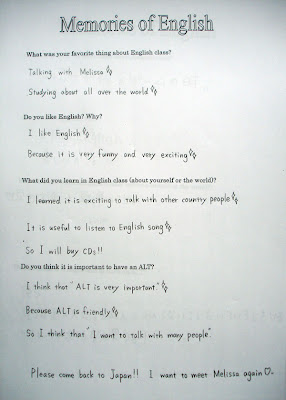 Memories of English
What was your favorite thing about English class?
Talking with Melissa
Studying about all over the world
Do you like English? Why?
I like English
Because it is very funny and very exciting
What did you learn in English class (about yourself or the world)?
I learned it is exciting to talk with other country people
It is useful to listen to English song
So I will buy CDs!!
Do you think it is important to have an ALT?
I think that "ALT is very important."
Because ALT is friendly
So I think that "I want to talk with many people"
Please come back to Japan!! I want to meet Melissa again♡